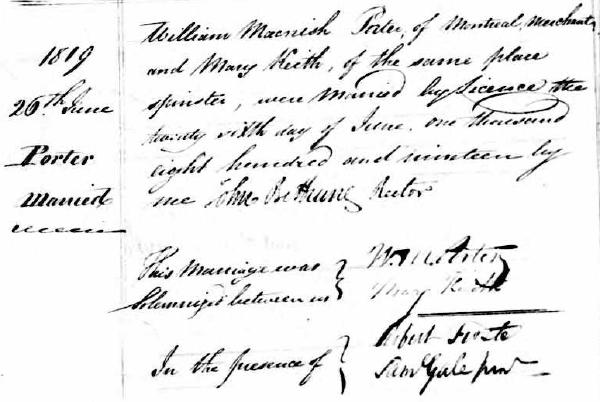 1819
26th June
Porter
Married
William Macnish Porter, of Montreal, Merchant,
and Mary Keith, of the same place
spinster, were Married by Licence the
twenty sixth day of June, one thousand
eight hundred and nineteen by
me John Bethune Rector
This Marriage was
Solemnized between us
Wm Porter
Mary Keith
In the presence of
Sam Gale junr